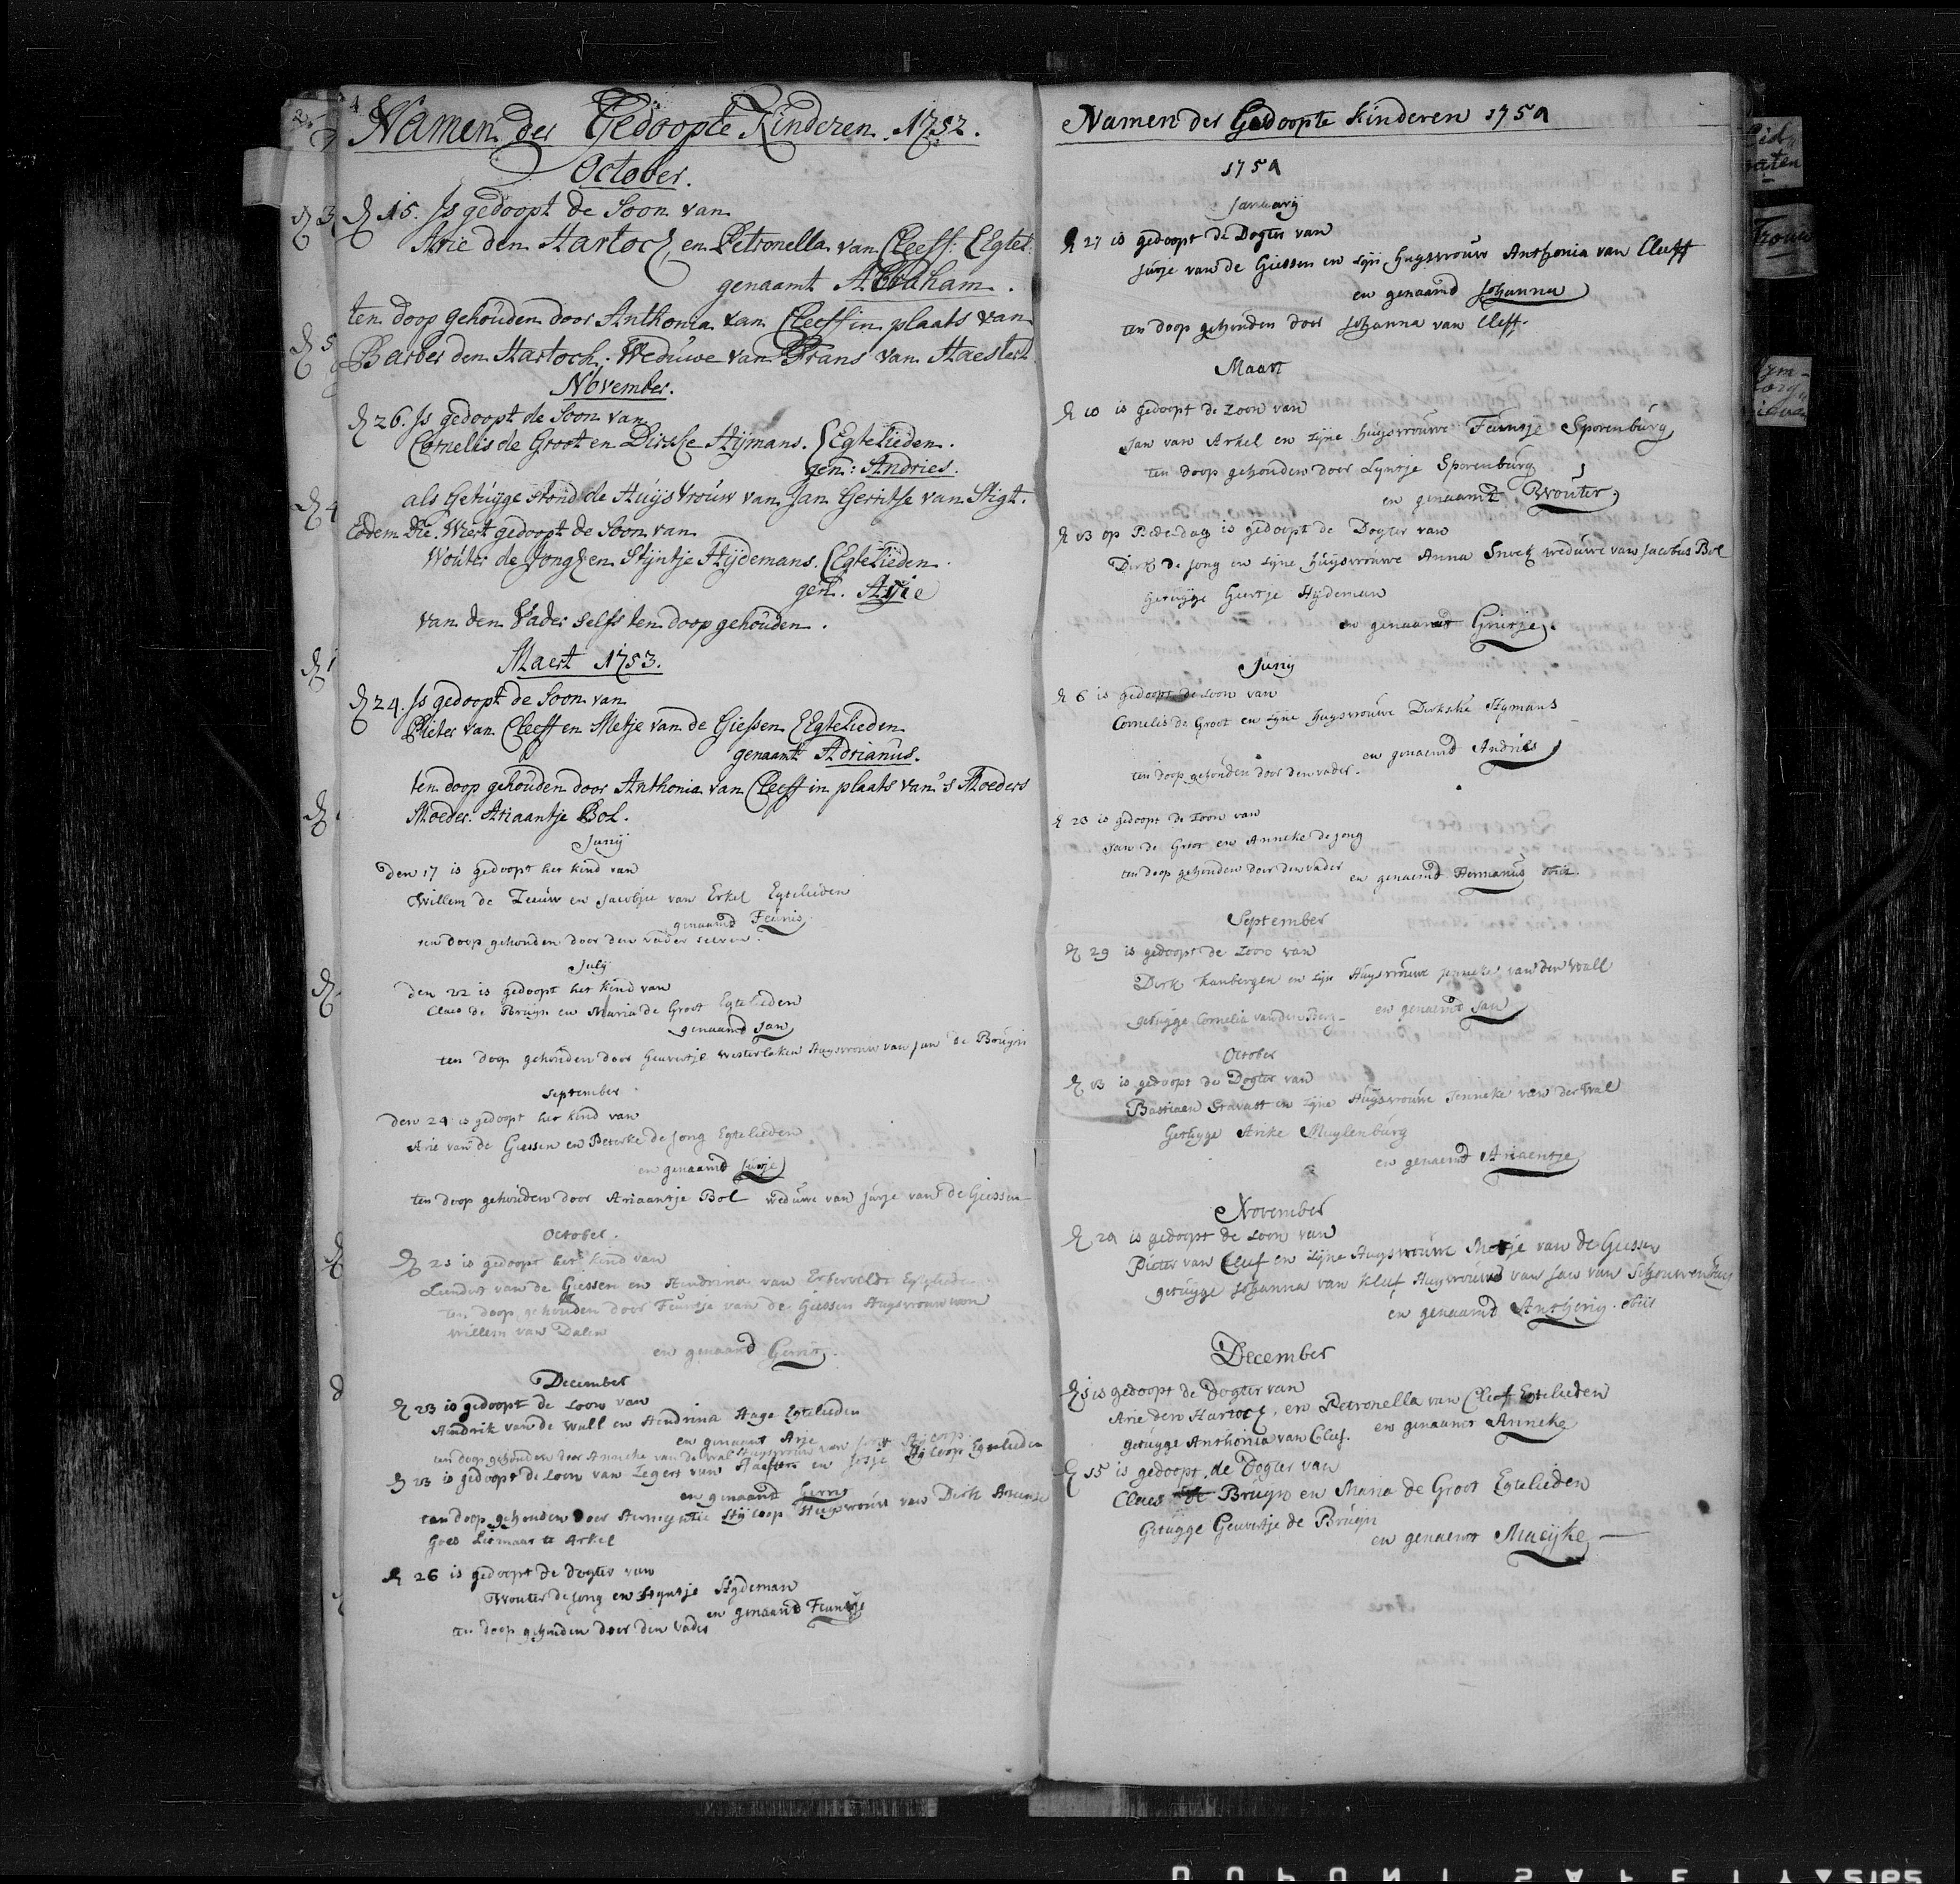 Namen der Gedoopte Kinderen 1752.
October.
15. Is gedoopt de Soon van
Arie den Hartoch en Petronella van Cleeff. Egtel:
genaamt Abraham.
ten doop gehouden door Anthonia van Cleeff in plaats van
Barber den Hartoch. Weduwe van Frans van Haesten.
November.
26. Is gedoopt de Soon van
Cornelis de Groot en Dirske Hijmans. Egtelieden.
gen: Andries.
als Getuyge stond de Huysvrouw van Jan Gerritse van Stigt.
Eodem Die. Wiert gedoopt de Soon van
Wouter de Jong en Stijntje Hijdemans. Egtelieden.
gen. Arie
van den Vader selfs ten doop gehouden.
Maert 1753.
24. Is gedoopt de Soon van
Pieter van Cleeff en Metje van de Giessen Egtelieden
genaamt Adrianus.
ten doop gehouden door Anthonia van Cleeff in plaats van 's Moeders
Moeder. Ariaantje Bol.
Junij
Den 17 is gedoopt het kind van
Willem de Leeuw en Jacobje van Erkel Egtelieden
genaamd Teunis
ten doop gehouden door den vader selven.
July
Den 22 is gedoopt het kind van
Claes de Bruijn en Maria de Groot Egtelieden
genaamd Jan
ten doop gehouden door Geuvertje Westerlaken Huysvrouw van Jan de Bruijn
September
Den 24 is gedoopt het kind van
Arie van de Giessen en Peterke de Jong Egtelieden
en genaamd Jurje
ten doop gehouden door Ariaantje Bol weduwe van Jurje van de Giessen
October.
21 is gedoopt het kind van
Leendert van de Giessen en Hendrina van
ten doop gehouden door Teuntje van de Giessen Huysvrouw van
Willem van Dalen
en genaamd Gerrit.
December
23 is gedoopt de Loon van
Hendrik van de Wall en Hendrina Hage Egtelieden
en genaamt Arje
ten doop gehouden door Anneke van de Wal Huysvrouw van Joost
23 is gedoopt de Loon van Zegert van Haeften en Egtelieden
en genaamd
ten doop gehouden door Huysvrouw van Dirk
Goes te Arkel
26 is gedoopt de dogter van
Wouter de Jong en Stijntje Hydeman
en genaamd Teuntje
ten doop gehouden door den vader
Namen der Gedoopte Kinderen 1754
1754
Januarij
27 is gedoopt de Dogter van
Jurje van de Giessen en sijn Huysvrouw Anthonia van Cleeff
en genaamd Johanna
ten doop gehouden door Johanna van Cleff.
Maart
10 is gedoopt de Zoon van
Jan van Arkel en zijne Huysvrouwe Teuntje Sporenburg
ten doop gehouden door Lyntje Sporenburg
en genaamt Wouter
13 op Bededag is gedoopt de Dogter van
Dirk de Jong en zijne Huysvrouwe Anna Snoek weduwe van Jacobus Bol
Getuyge Geertje Hijdeman
en genaamt Grietje.
Junij
6 is gedoopt de Zoon van
Cornelis de Groot en zijne Huysvrouwe Dirkske Hymans
en genaemd Andries
ten doop gehouden door den vader.
23 is gedoopt de Zoon van
Jan de Groot en Anneke de Jong
ten doop gehouden door den vader en genaemd Hermanus obiit.
September
29 is gedoopt de Zoon van
Dirk Kanbergen en zijn Huysvrouwe Jenneke van der Wall
getuyge Cornelia van den Berg en genaemt Jan
October
13 is gedoopt de Dogter van
Bastiaen Gravast en zijne Huysvrouwe Jenneke van der Wal
Getuyge Arike Muylenburg
en genaemd Ariaentje
November
24 is gedoopt de Zoon van
Pieter van Cleef en zijne Huysvrouwe Metje van de Giessen
getuyge Johanna van Kleef Huysvrouwe van Jan van
en genaamd Anthonij. obiit
December
is gedoopt de Dogter van
Arie den Hartoch, en Petronella van Cleef Egtelieden
getuyge Anthonia van Cleef. en genaamt Anneke
15 is gedoopt de Dogter van
Claes de Bruijn en Maria de Groot Egtelieden
Getuyge Geuvertje de Bruijn
en genaemt Maeijke